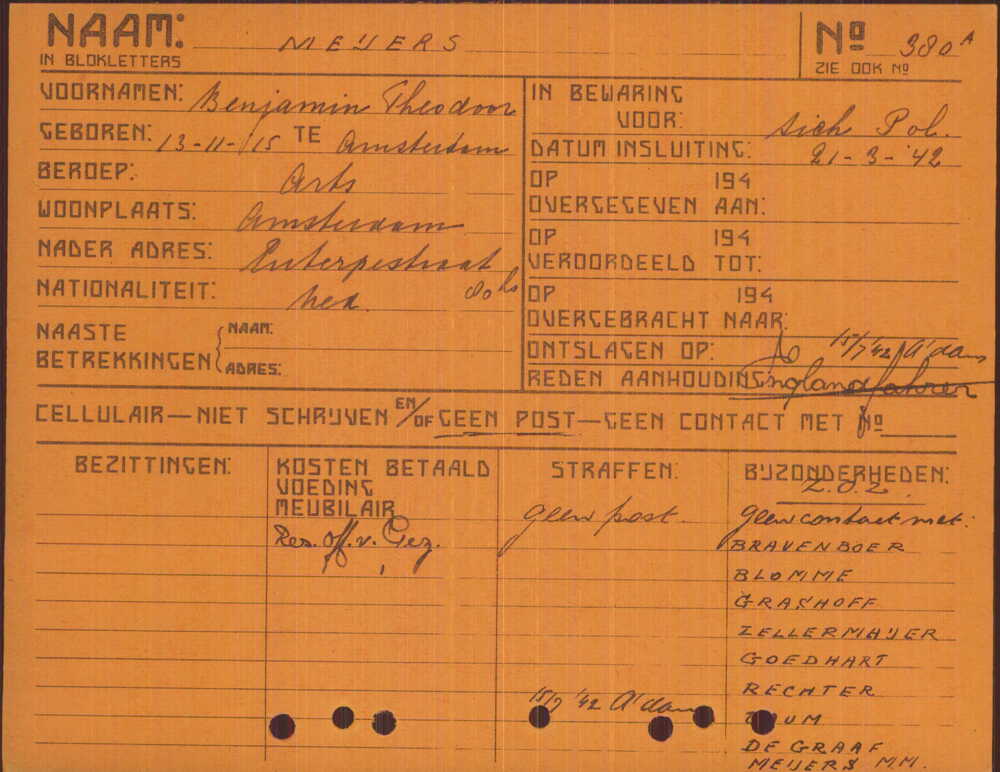 NAAM: MEIJERS
IN BLOKLETTERS
No 380 A
ZIE OOK No
VOORNAMEN: Benjamin Theodoor
GEBOREN: 13-11-'15 TE Amsterdam
BEROEP: Arts
WOONPLAATS: Amsterdam
NADER ADRES: Euterpestraat
NATIONALITEIT: ned. 80 hs
NAASTE BETREKKINGEN
NAAM:
ADRES:
IN BEWARING
VOOR: Sich Pol.
DATUM INSLUITING: 21-3-'42
OP 194
OVERGEGEVEN AAN:
OP 194
VEROORDEELD TOT:
OP 194
OVERGEBRACHT NAAR:
ONTSLAGEN OP: 15/7 '42 A'dam
REDEN AANHOUDING: Englandfahrer
CELLULAIR—NIET SCHRIJVEN EN/OF GEEN POST—GEEN CONTACT MET No
BEZITTINGEN:
KOSTEN BETAALD
VOEDING
MEUBILAIR
Res. off. v. Gez.
STRAFFEN:
geen post.
15/7 '42 A'dam
BIJZONDERHEDEN:
Z.O.Z.
geen contact met:
BRAVENBOER
BLOMME
GRASHOFF
ZELLERMAIJER
GOEDHART
RECHTER
DE GRAAF
MEIJERS MM.